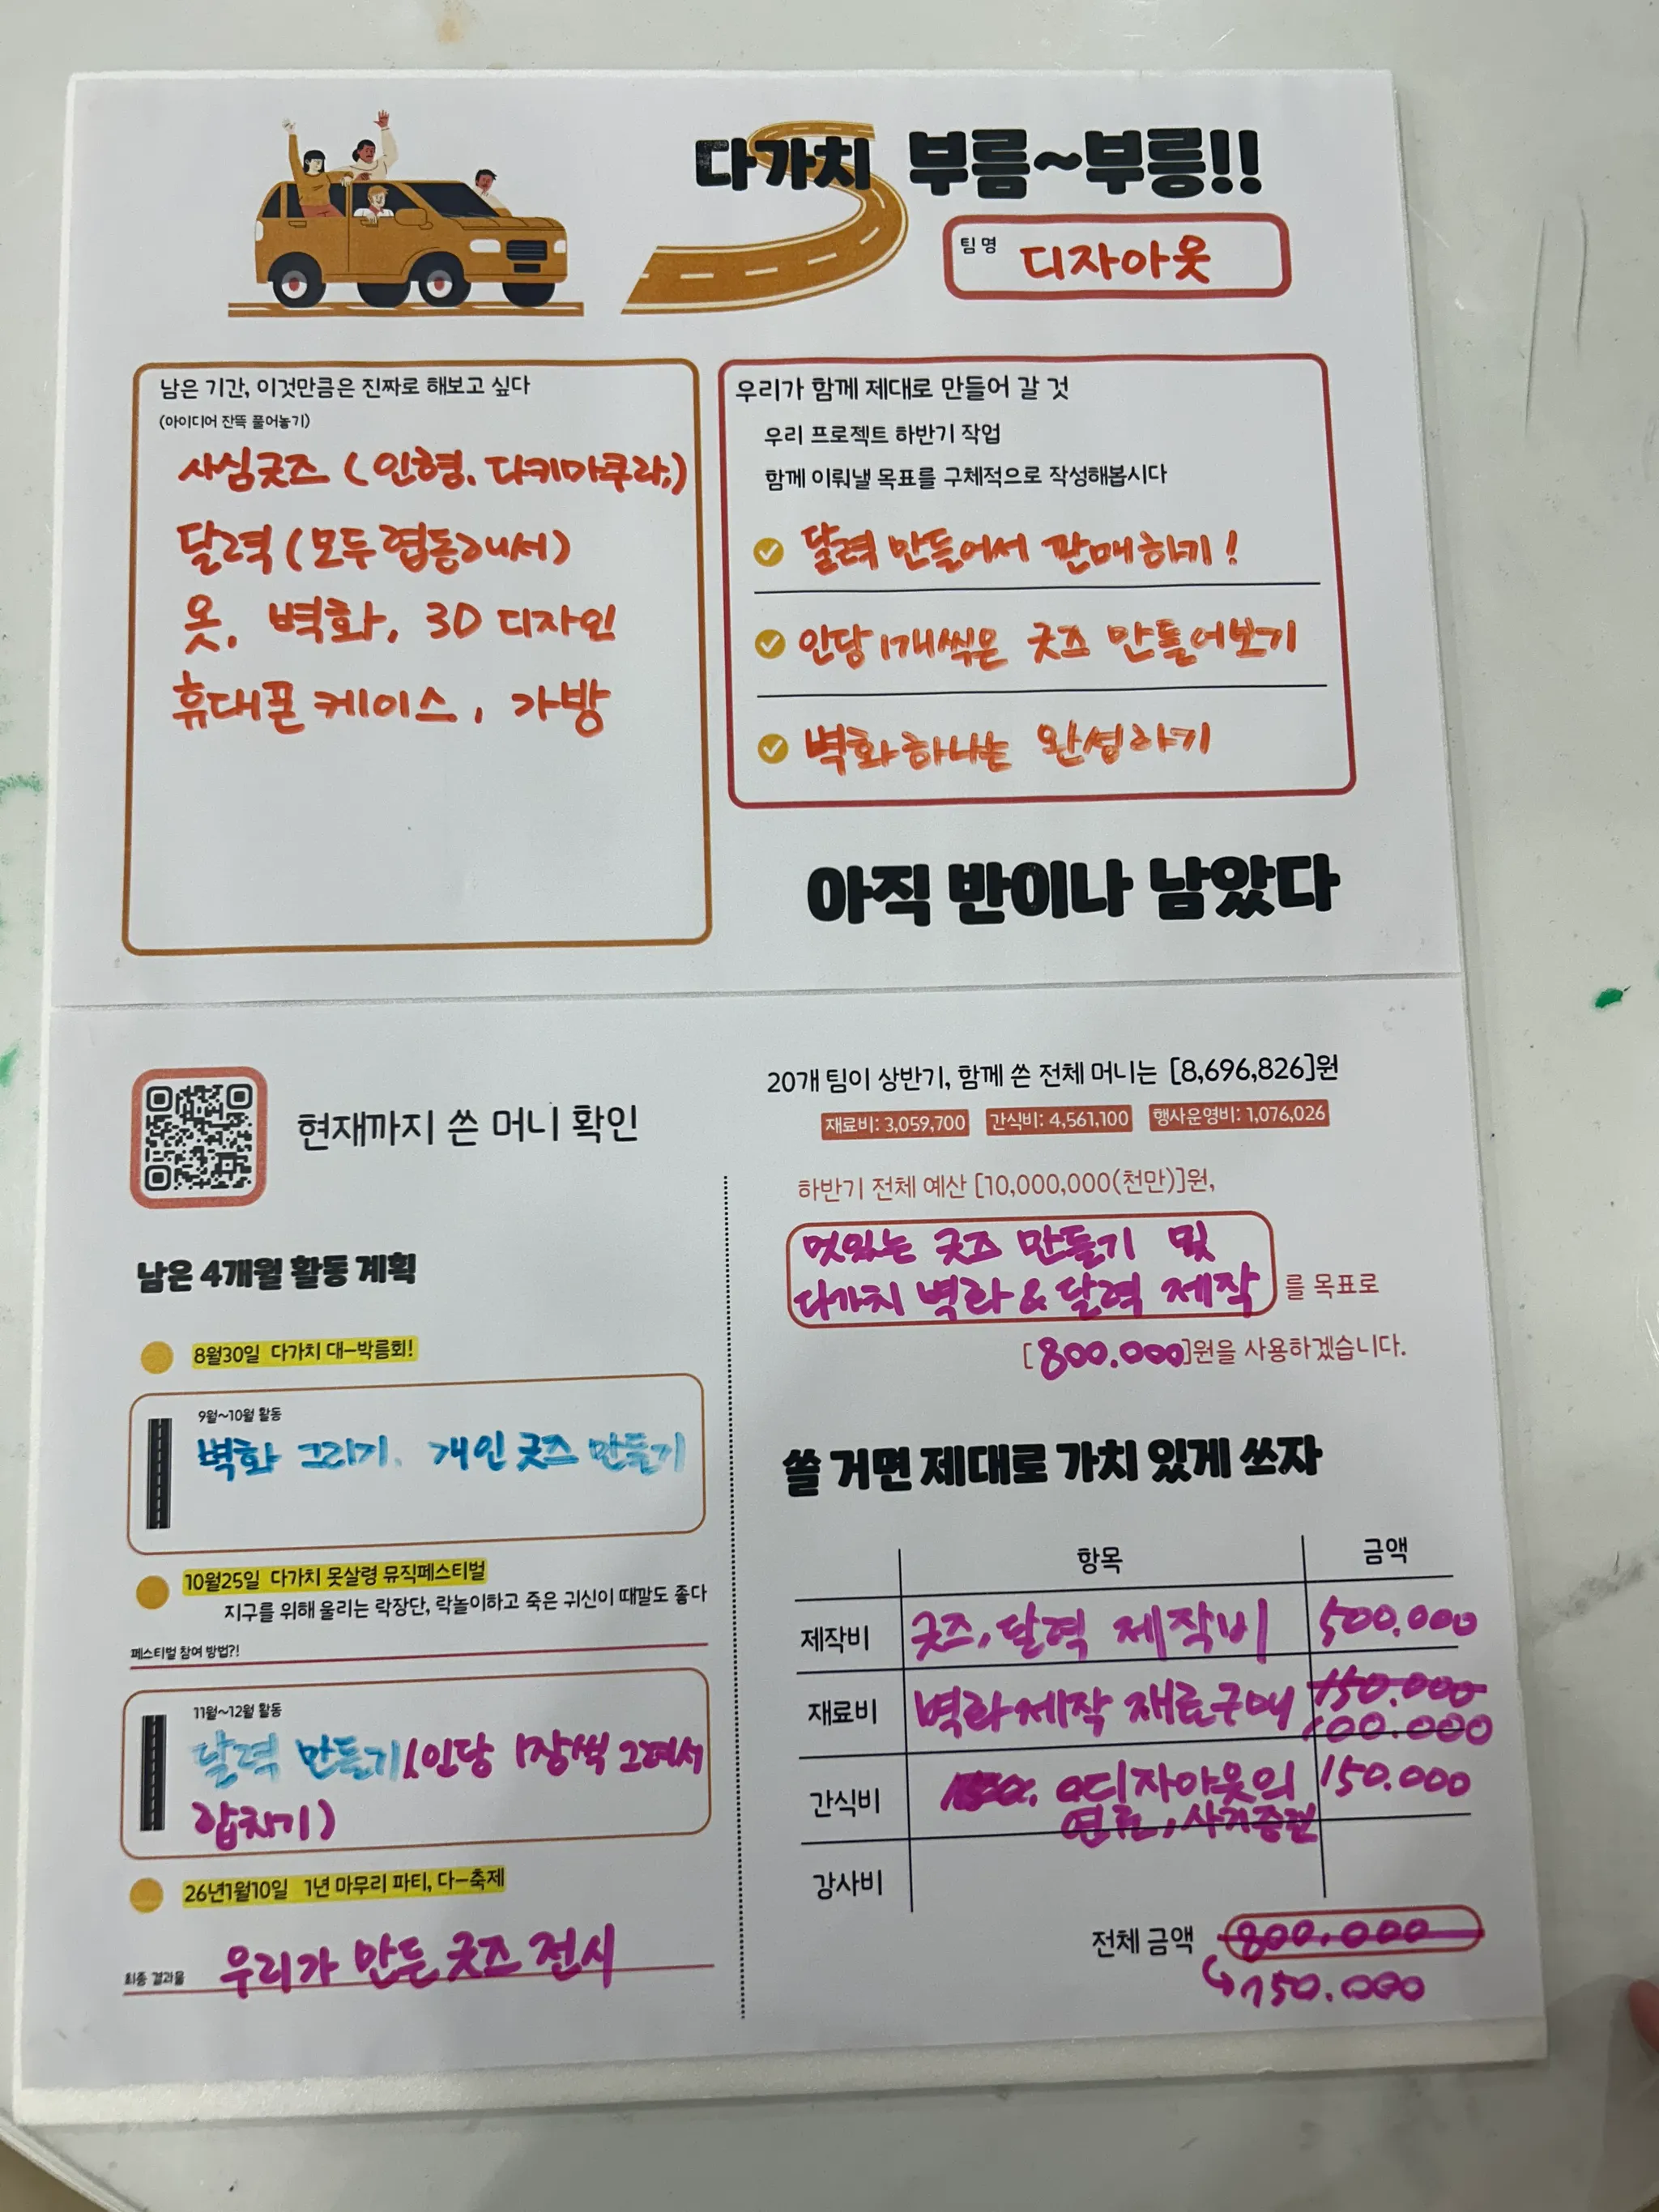 다가치 부름~부릉!!
팀명 디자아웃
남은 기간, 이것만큼은 진짜로 해보고 싶다
(아이디어 잔뜩 풀어놓기)
사심굿즈 (인형. 다키마쿠라,)
달력 (모두 협동해서)
옷, 벽화, 3D 디자인
휴대폰 케이스, 가방
우리가 함께 제대로 만들어 갈 것
우리 프로젝트 하반기 작업
함께 이뤄낼 목표를 구체적으로 작성해봅시다
달력 만들어서 판매하기!
인당 1개씩은 굿즈 만들어보기
벽화 하나는 완성하기
아직 반이나 남았다
현재까지 쓴 머니 확인
남은 4개월 활동 계획
8월30일 다가치 대-박름회!
9월~10월 활동
벽화 그리기. 개인 굿즈 만들기
10월25일 다가치 못살령 뮤직페스티벌
지구를 위해 울리는 락장단, 락놀이하고 죽은 귀신이 때깔도 좋다
페스티벌 참여 방법?!
11월~12월 활동
달력 만들기 (인당 1장씩 그려서
합치기)
26년1월10일 1년 마무리 파티, 다-축제
최종 결과물 우리가 만든 굿즈 전시
20개 팀이 상반기, 함께 쓴 전체 머니는 [8,696,826]원
재료비: 3,059,700 간식비: 4,561,100 행사운영비: 1,076,026
하반기 전체 예산 [10,000,000(천만)]원,
멋있는 굿즈 만들기 및
다가치 벽화 & 달력 제작 를 목표로
[800.000]원을 사용하겠습니다.
쓸 거면 제대로 가치 있게 쓰자
항목 금액
제작비 굿즈, 달력 제작비 500.000
재료비 벽화제작 재료구매 150.000
100.000
간식비 디자아웃의 150.000
연료,
강사비
전체 금액 800.000
750.000